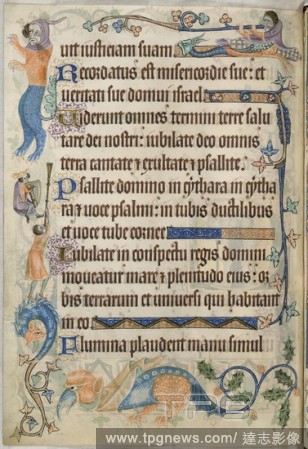 uit iusticiam suam.
Recordatus est misericordie sue: et
ueritati sue domui israel.
Uiderunt omnes termini terre salu
tare dei nostri: iubilate deo omnis
terra cantate et exultate et psallite.
Psallite domino in cythara in cytha
ra et uoce psalmi: in tubis ductilibus
et uoce tube cornee
Iubilate in conspectu regis domini
moueatur mare et plenitudo eius: or
bis terrarum et uniuersi qui habitant
in eo.
Flumina plaudent manu simul
TPG
www.tpgnews.com/ 達志影像